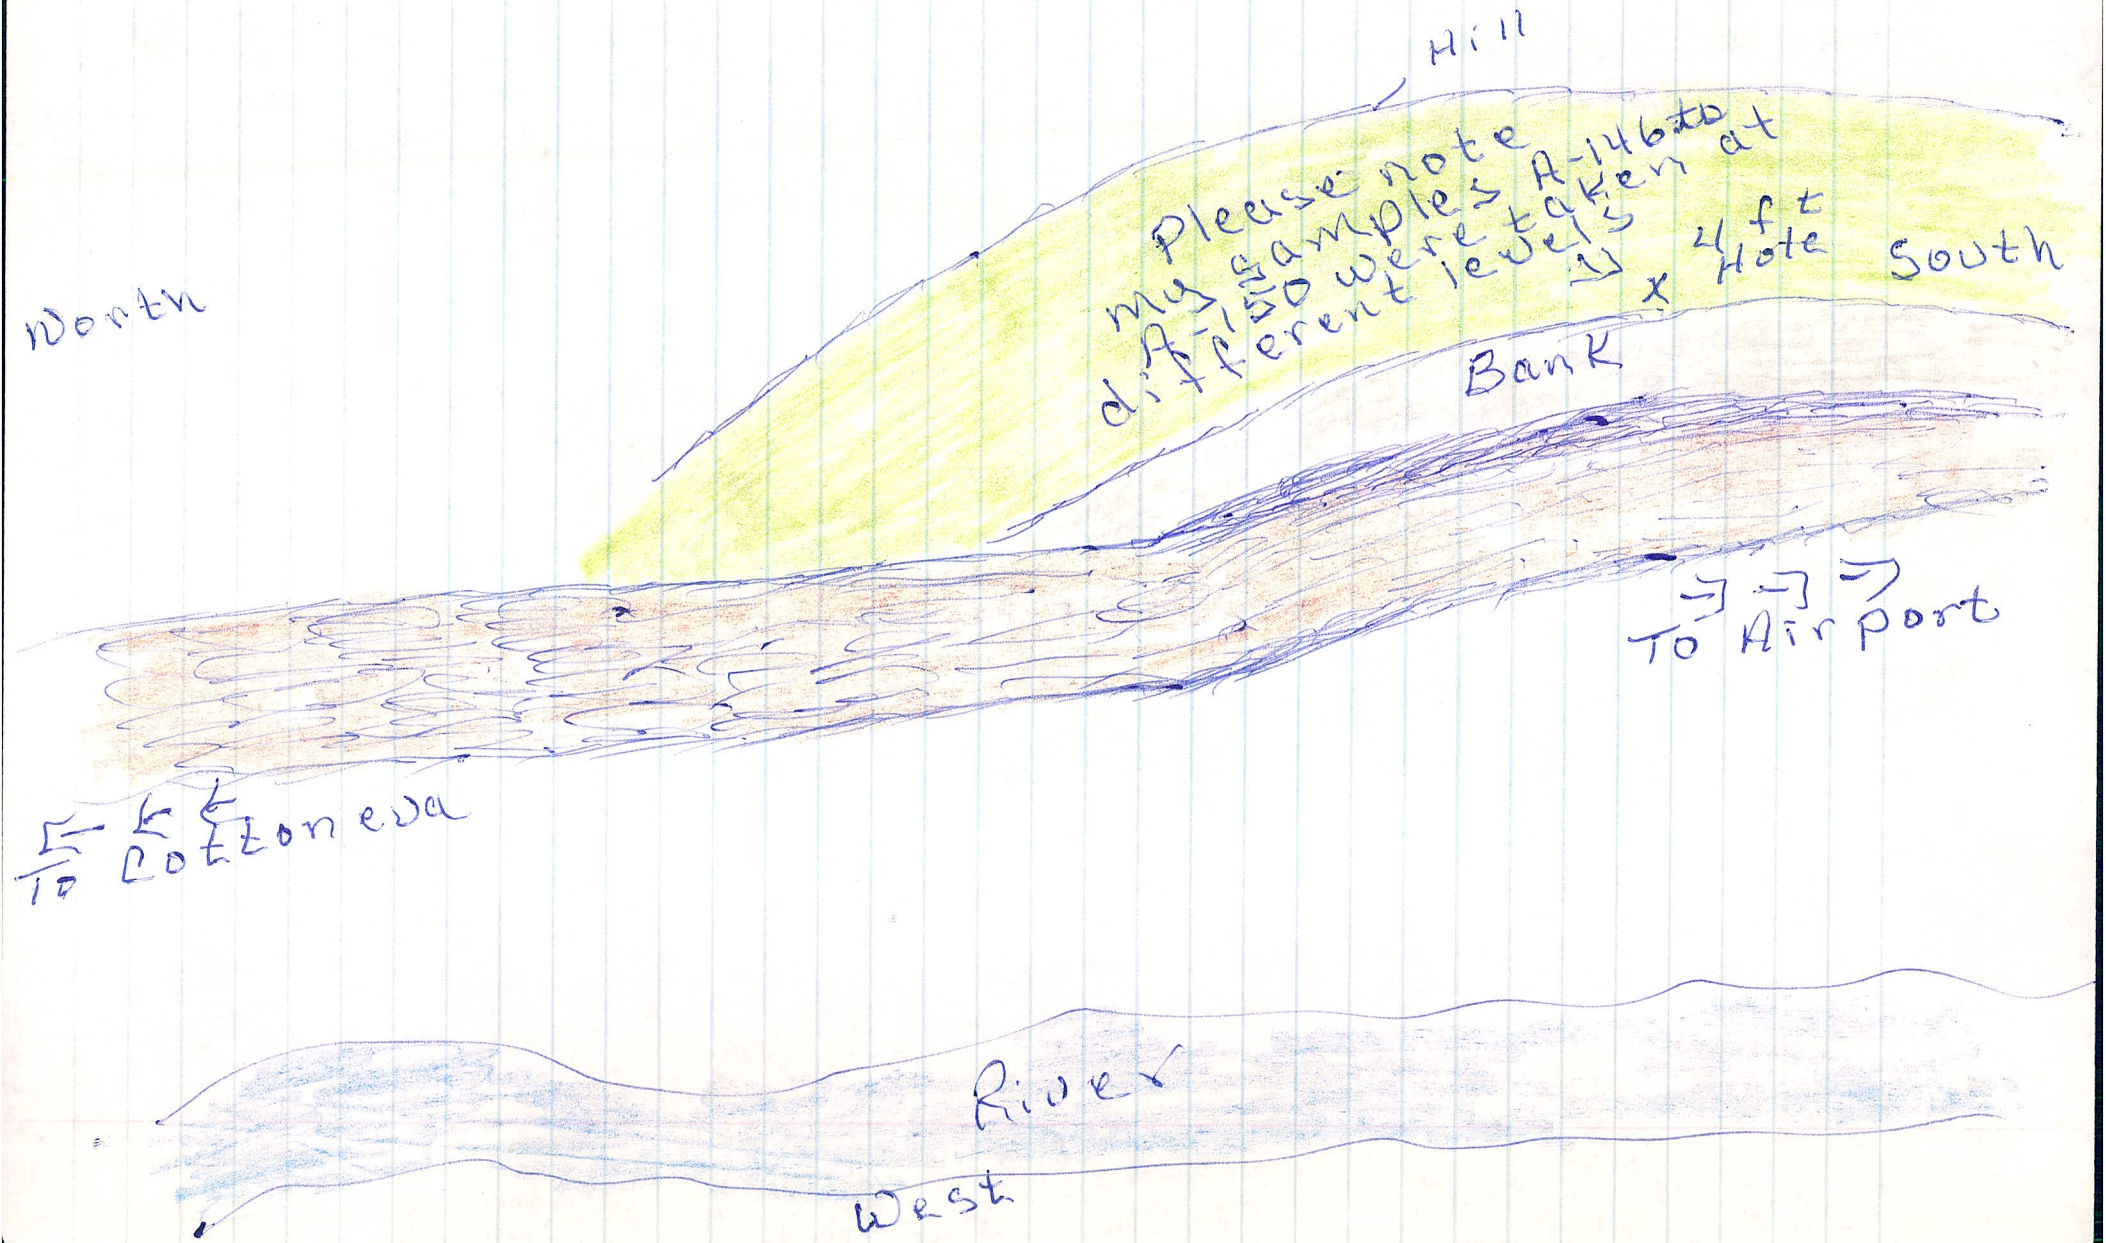 Hill
Please note
my samples A-146 to
A-150 were taken at
different levels
4 ft
Hole
South
North
Bank
To Airport
To Cottoneva
River
West